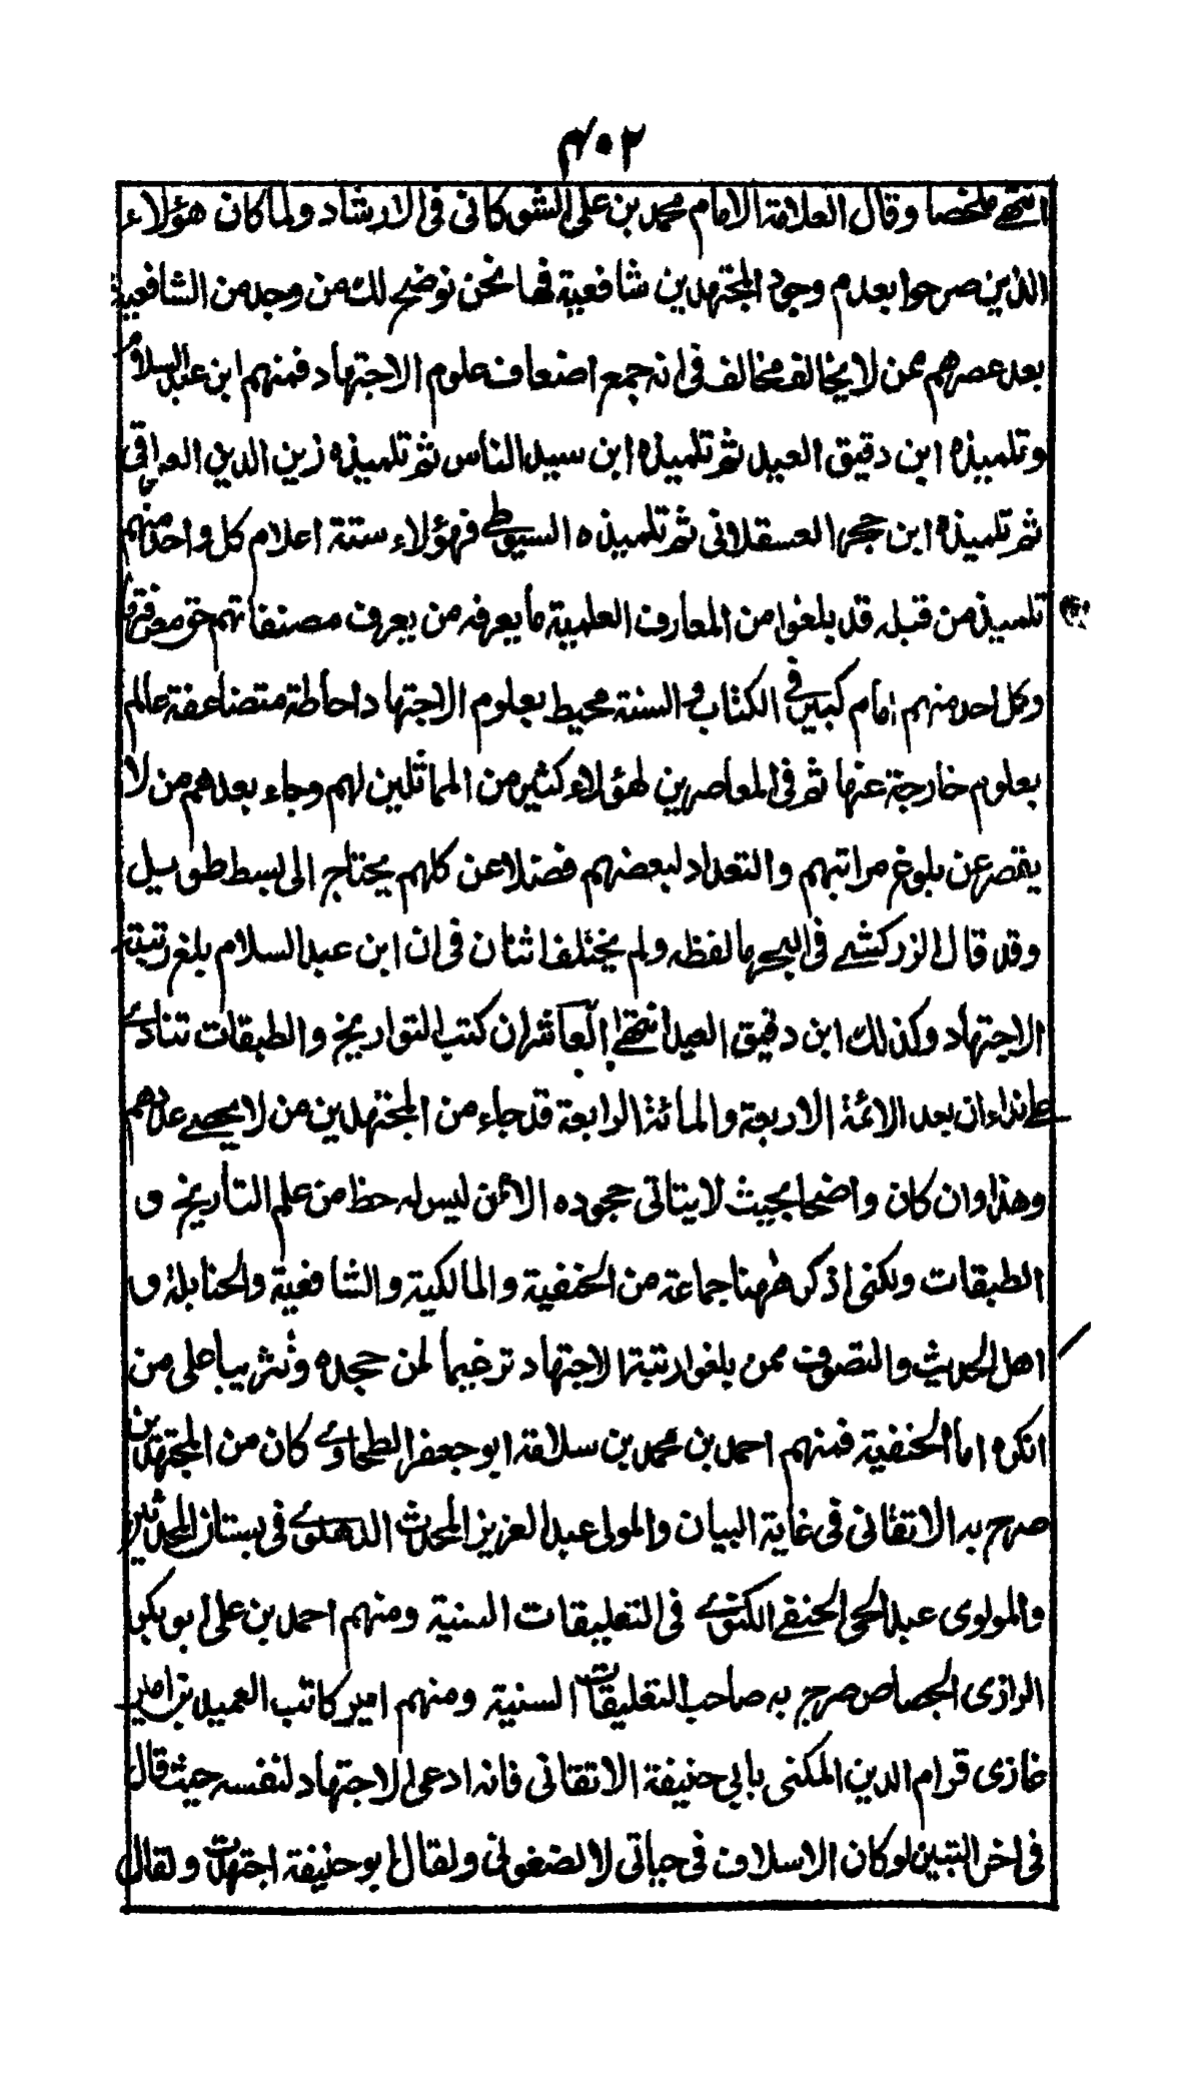 ٤٠٢
انتهى ملخصا وقال العلامة الامام محمد بن على الشوكانى فى الارشاد ولما كان هؤلاء
الذين صرحوا بعدم وجود المجتهدين شافعية فها نحن نوضح لك من وجد من الشافعية
بعد عصرهم ممن لا يخالف مخالف فى انه جمع اضعاف علوم الاجتهاد فمنهم ابن عبد السلام
وتلميذه ابن دقيق العيد ثم تلميذه ابن سيد الناس ثم تلميذه زين الدين العراقى
ثم تلميذه ابن حجر العسقلانى ثم تلميذه السيوطى فهؤلاء ستة اعلام كل واحد منهم
تلميذ من قبله قد بلغوا من المعارف العلمية ما يعرفه من يعرف مصنفاتهم حق معرفتها
وكل احد منهم امام كبير فى الكتاب و السنة محيط بعلوم الاجتهاد احاطة متضاعفة عالم
بعلوم خارجة عنها ثم فى المعاصرين لهؤلاء كثير من المماثلين لهم وجاء بعدهم من لا
يقصر عن بلوغ مراتبهم والتعداد لبعضهم فضلا عن كلهم يحتاج الى بسط طويل
وقد قال الزركشى فى البحر ما لفظه ولم يختلف اثنان فى ان ابن عبد السلام بلغ رتبة
الاجتهاد وكذلك ابن دقيق العيد انتهى العاشر ان كتب التواريخ والطبقات تنادى
نداء ان بعد الائمة الاربعة والمائة الرابعة قد جاء من المجتهدين من لا يحصى عددهم
وهذا وان كان واضحا بحيث لا يتاتى جحوده الا ممن ليس له حظ من علم التأريخ و
الطبقات ولكنى اذكر ههنا جماعة من الحنفية والمالكية والشافعية والحنابلة و
اهل الحديث والتصوف ممن بلغوا رتبة الاجتهاد ترغيما لمن جحده وتثريبا على من
انكره اما الحنفية فمنهم احمد بن محمد بن سلامة ابو جعفر الطحاوى كان من المجتهدين
صرح به الاتقانى فى غاية البيان والمولى عبد العزيز المحدث الدهلوى فى بستان المحدثين
والمولوى عبد الحى الحنفى الكنوى فى التعليقات السنية ومنهم احمد بن على ابو بكر
الرازى الجصاص صرح به صاحب التعليقات السنية ومنهم امير كاتب العميد بن امير
غازى قوام الدين المكنى بابى حنيفة الاتقانى فانه ادعى الاجتهاد لنفسه حيث قال
فى اخر التبيين لو كان الاسلاف فى حياتى لانصفونى ولقال ابو حنيفة اجتهدت ولقال